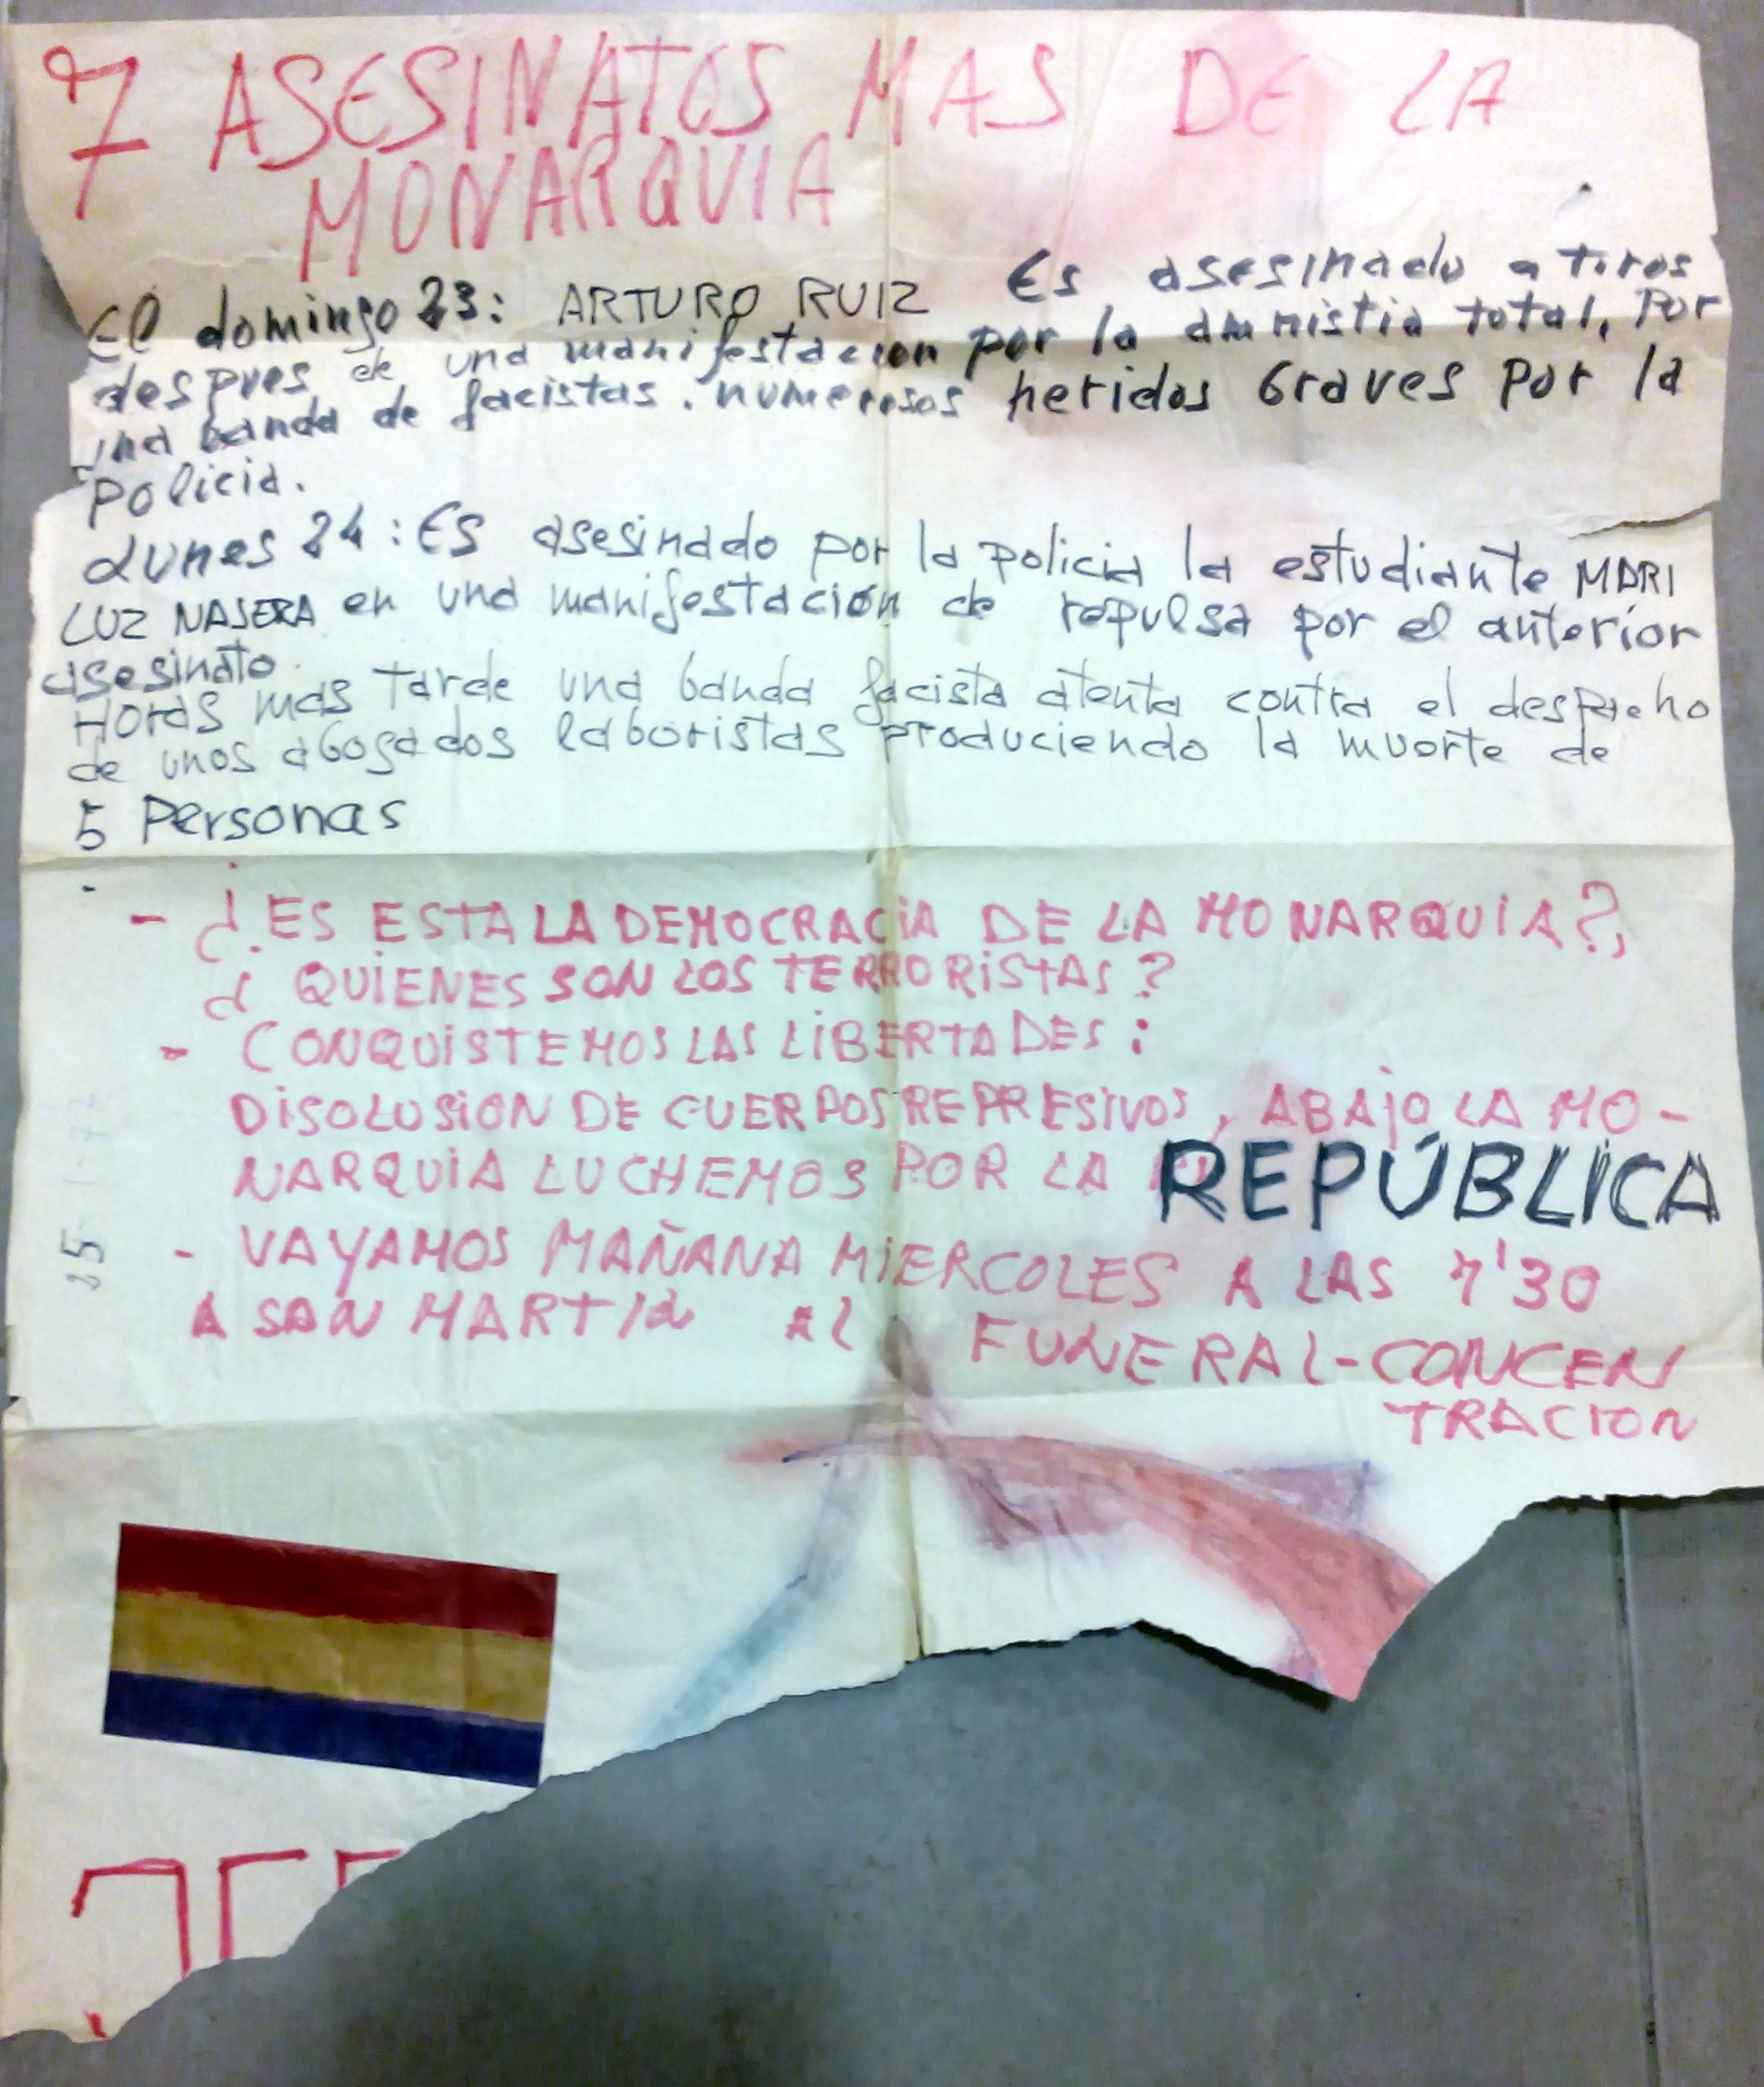 7 ASESINATOS MAS DE LA
MONARQUIA
El domingo 23: ARTURO RUIZ Es asesinado a tiros
despues de una manifestacion por la amnistia total, por
una banda de facistas. numerosos heridos Graves por la
policia.
Lunes 24: Es asesinado por la policia la estudiante MARI
LUZ NAJERA en una manifestación de repulsa por el anterior
asesinato.
Horas mas tarde una banda facista atenta contra el despacho
de unos abogados laboristas produciendo la muerte de
5 Personas
- ¿ES ESTA LA DEMOCRACIA DE LA MONARQUIA?,
¿QUIENES SON LOS TERRORISTAS?
- CONQUISTEMOS LAS LIBERTADES:
DISOLUSION DE CUERPOS REPRESIVOS, ABAJO LA MO-
NARQUIA LUCHEMOS POR LA REPÚBLICA
- VAYAMOS MAÑANA MIERCOLES A LAS 7'30
A SAN MARTIN AL FUNERAL-CONCEN
TRACION
25-1-77